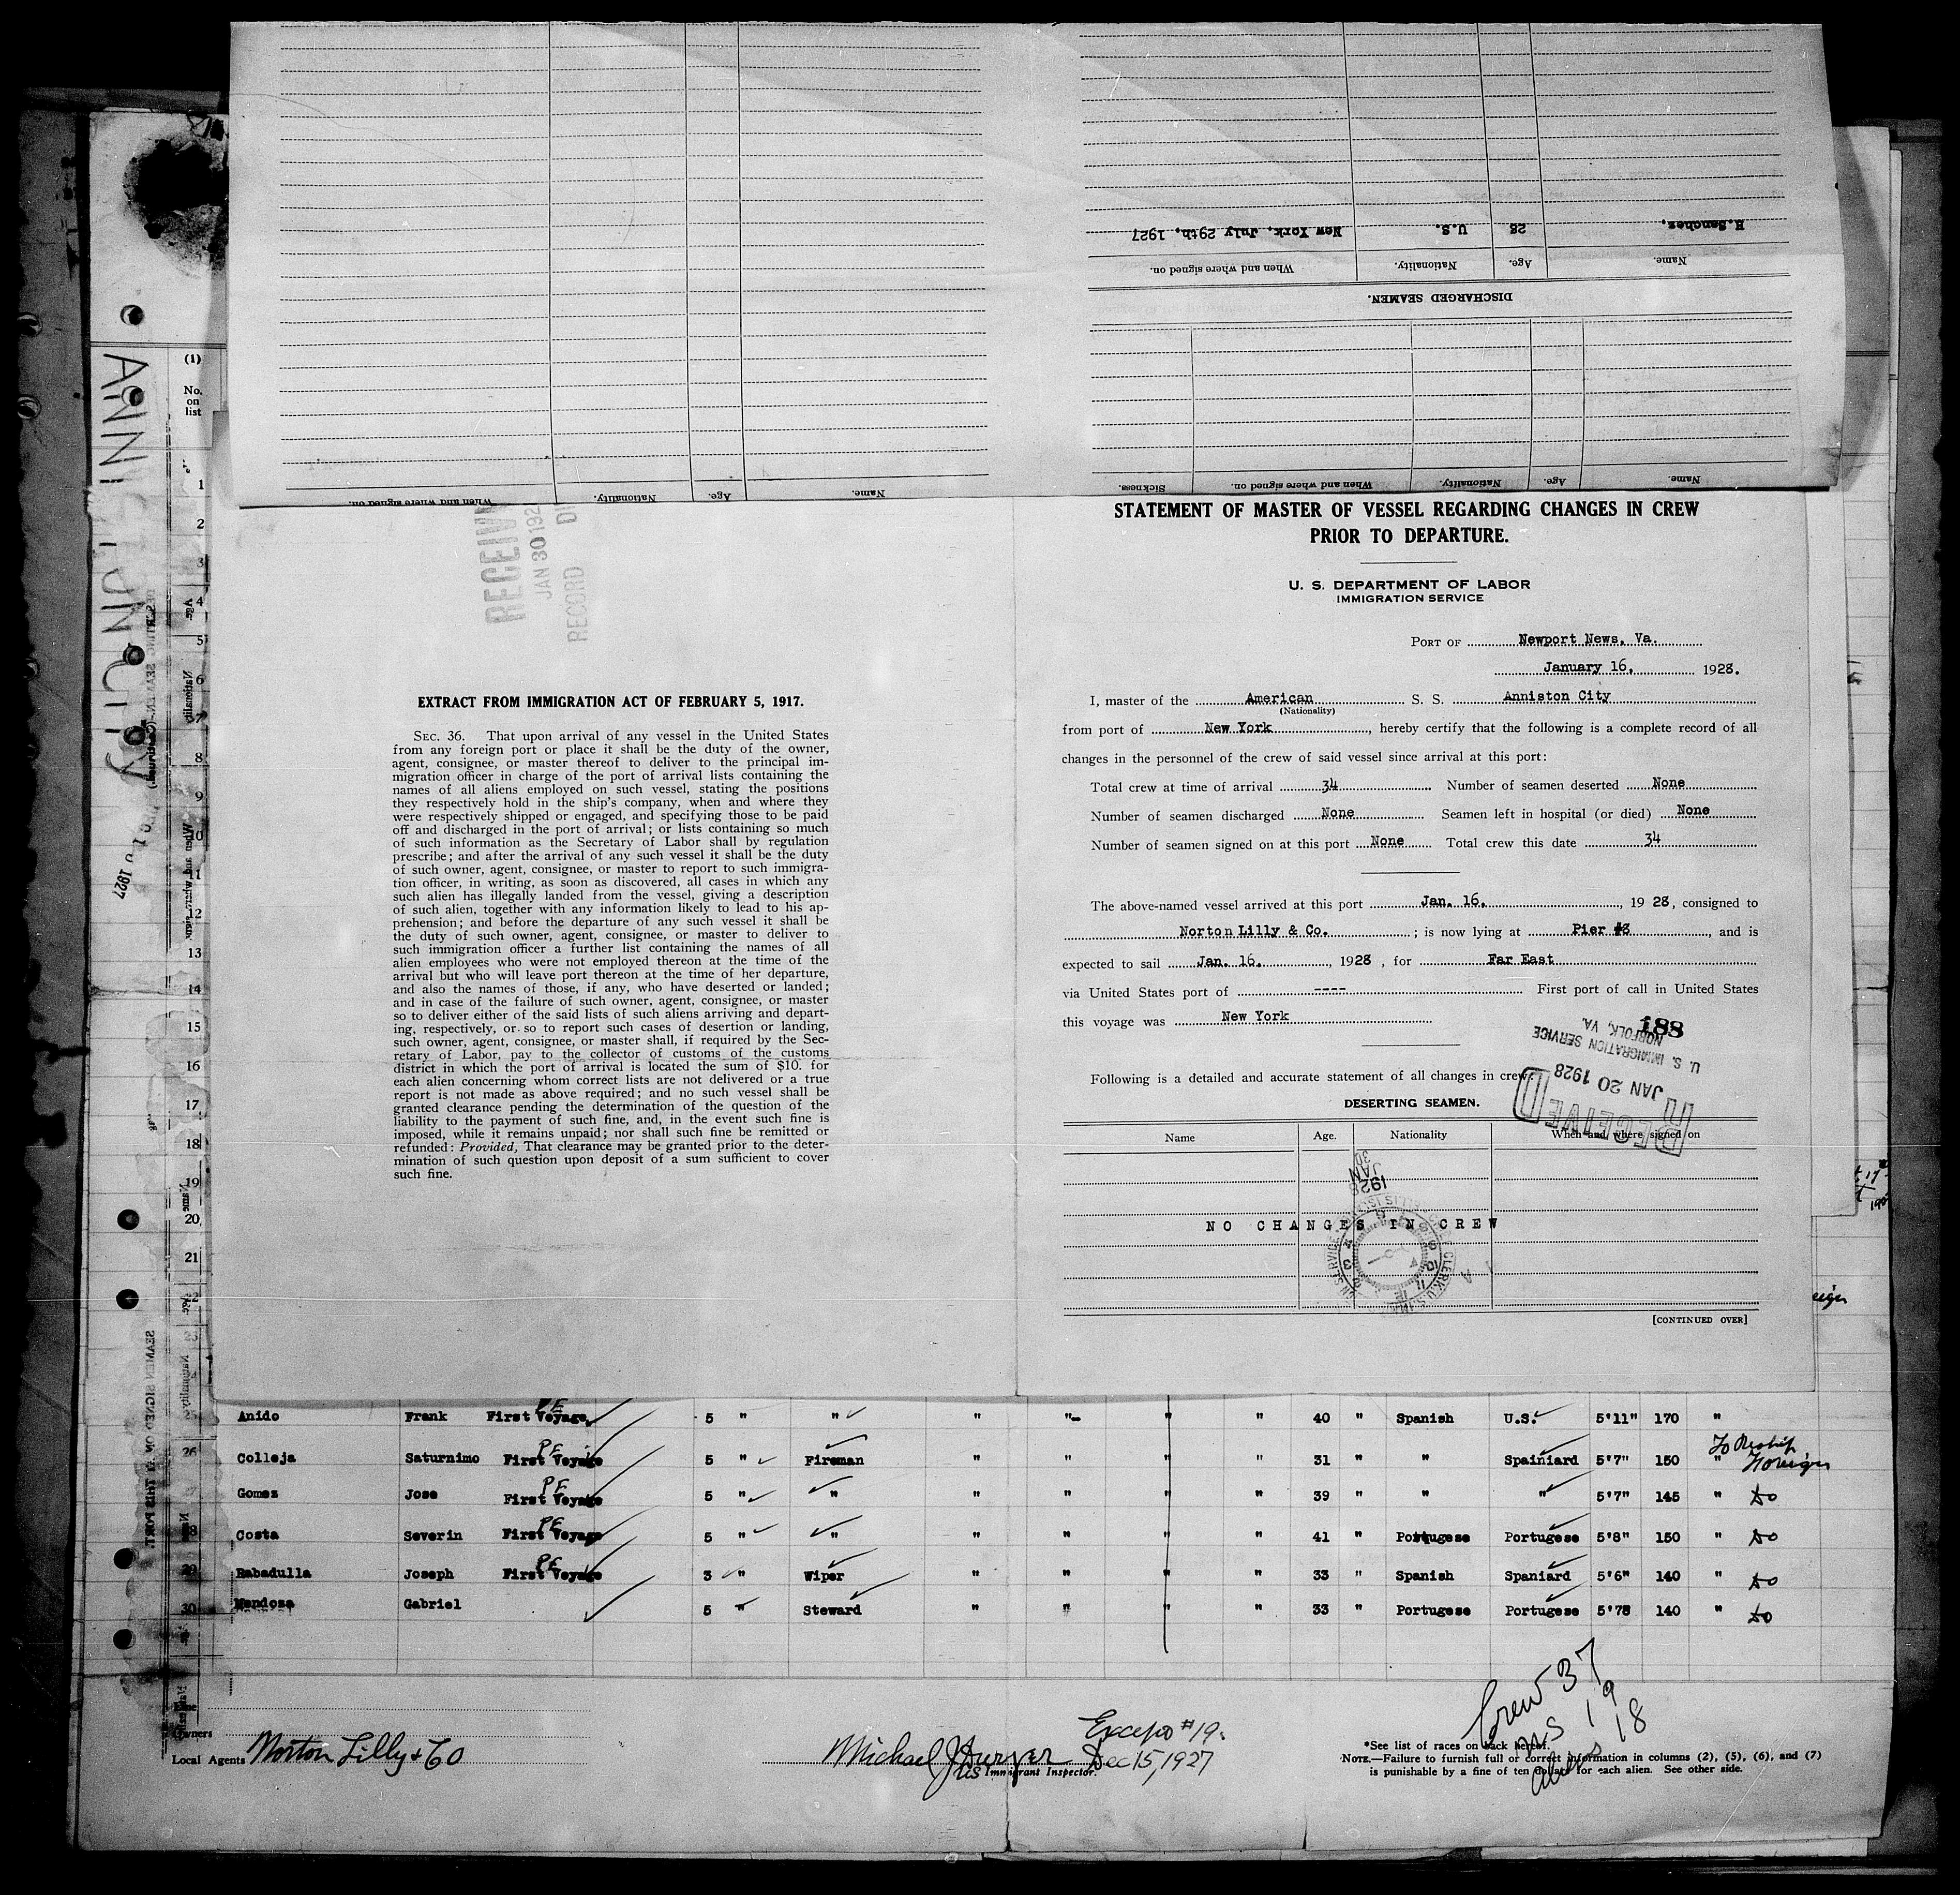 H.Sanchez, 28 U.S. New York, July 29th, 1927
Name. Age. Nationality. When and where signed on.
DISCHARGED SEAMEN.
Name. Age. Nationality. When and where signed on. Sickness.
Name. Age. Nationality. When and where signed on.
ANNISTON CITY
1927
(1)
No.
on
list
1
2
3
4
5
6
7
8
9
10
11
12
13
14
15
16
17
18
19
20
21
SEAMEN SIGNED ON AT THIS PORT.
RECEIVED
JAN 30 192
RECORD DI
EXTRACT FROM IMMIGRATION ACT OF FEBRUARY 5, 1917.
SEC. 36. That upon arrival of any vessel in the United States
from any foreign port or place it shall be the duty of the owner,
agent, consignee, or master thereof to deliver to the principal im-
migration officer in charge of the port of arrival lists containing the
names of all aliens employed on such vessel, stating the positions
they respectively hold in the ship's company, when and where they
were respectively shipped or engaged, and specifying those to be paid
off and discharged in the port of arrival; or lists containing so much
of such information as the Secretary of Labor shall by regulation
prescribe; and after the arrival of any such vessel it shall be the duty
of such owner, agent, consignee, or master to report to such immigra-
tion officer, in writing, as soon as discovered, all cases in which any
such alien has illegally landed from the vessel, giving a description
of such alien, together with any information likely to lead to his ap-
prehension; and before the departure of any such vessel it shall be
the duty of such owner, agent, consignee, or master to deliver to
such immigration officer a further list containing the names of all
alien employees who were not employed thereon at the time of the
arrival but who will leave port thereon at the time of her departure,
and also the names of those, if any, who have deserted or landed;
and in case of the failure of such owner, agent, consignee, or master
so to deliver either of the said lists of such aliens arriving and depart-
ing, respectively, or so to report such cases of desertion or landing,
such owner, agent, consignee, or master shall, if required by the Sec-
retary of Labor, pay to the collector of customs of the customs
district in which the port of arrival is located the sum of $10. for
each alien concerning whom correct lists are not delivered or a true
report is not made as above required; and no such vessel shall be
granted clearance pending the determination of the question of the
liability to the payment of such fine, and, in the event such fine is
imposed, while it remains unpaid; nor shall such fine be remitted or
refunded: Provided, That clearance may be granted prior to the deter-
mination of such question upon deposit of a sum sufficient to cover
such fine.
STATEMENT OF MASTER OF VESSEL REGARDING CHANGES IN CREW
PRIOR TO DEPARTURE.
U. S. DEPARTMENT OF LABOR
IMMIGRATION SERVICE
PORT OF Newport News, Va.
January 16, 1928.
I, master of the American S. S. Anniston City
(Nationality)
from port of New York, hereby certify that the following is a complete record of all
changes in the personnel of the crew of said vessel since arrival at this port:
Total crew at time of arrival 34 Number of seamen deserted None
Number of seamen discharged None Seamen left in hospital (or died) None
Number of seamen signed on at this port None Total crew this date 34
The above-named vessel arrived at this port Jan. 16, 1928, consigned to
Norton Lilly & Co. ; is now lying at Pier #8, and is
expected to sail Jan. 16, 1928, for Far East
via United States port of ---- First port of call in United States
this voyage was New York
188
RECEIVED
JAN 20 1928
U. S. IMMIGRATION SERVICE
NORFOLK, VA.
Following is a detailed and accurate statement of all changes in crew:
DESERTING SEAMEN.
Name Age. Nationality When and where signed on
JAN 30 1928
NO CHANGES IN CREW
[CONTINUED OVER]
25 Anido Frank PF First Voyage 5 " " " "- " " 40 " Spanish U.S. 5'11" 170 "
26 Colleja Saturnimo PF First Voyage 5 " Fireman " " " " 31 " " Spainiard 5'7" 150 " To Reship Foreign
27 Gomez Jose PF First Voyage 5 " " " " " " 39 " " " 5'7" 145 " do
28 Costa Severin PF First Voyage 5 " " " " " " 41 " Portugese Portugese 5'8" 150 " do
29 Rabadulla Joseph PF First Voyage 3 " Wiper " " " " 33 " Spanish Spaniard 5'6" 140 " do
30 Mendosa Gabriel 5 " Steward " " " " 33 " Portugese Portugese 5'78 140 " do
Crew 37
US 19
aliens 18
Owners
Local Agents Norton Lilly & Co
Except #19.
Dec 15, 1927
US Immigrant Inspector.
*See list of races on back hereof.
NOTE.—Failure to furnish full or correct information in columns (2), (5), (6), and (7)
is punishable by a fine of ten dollars for each alien. See other side.